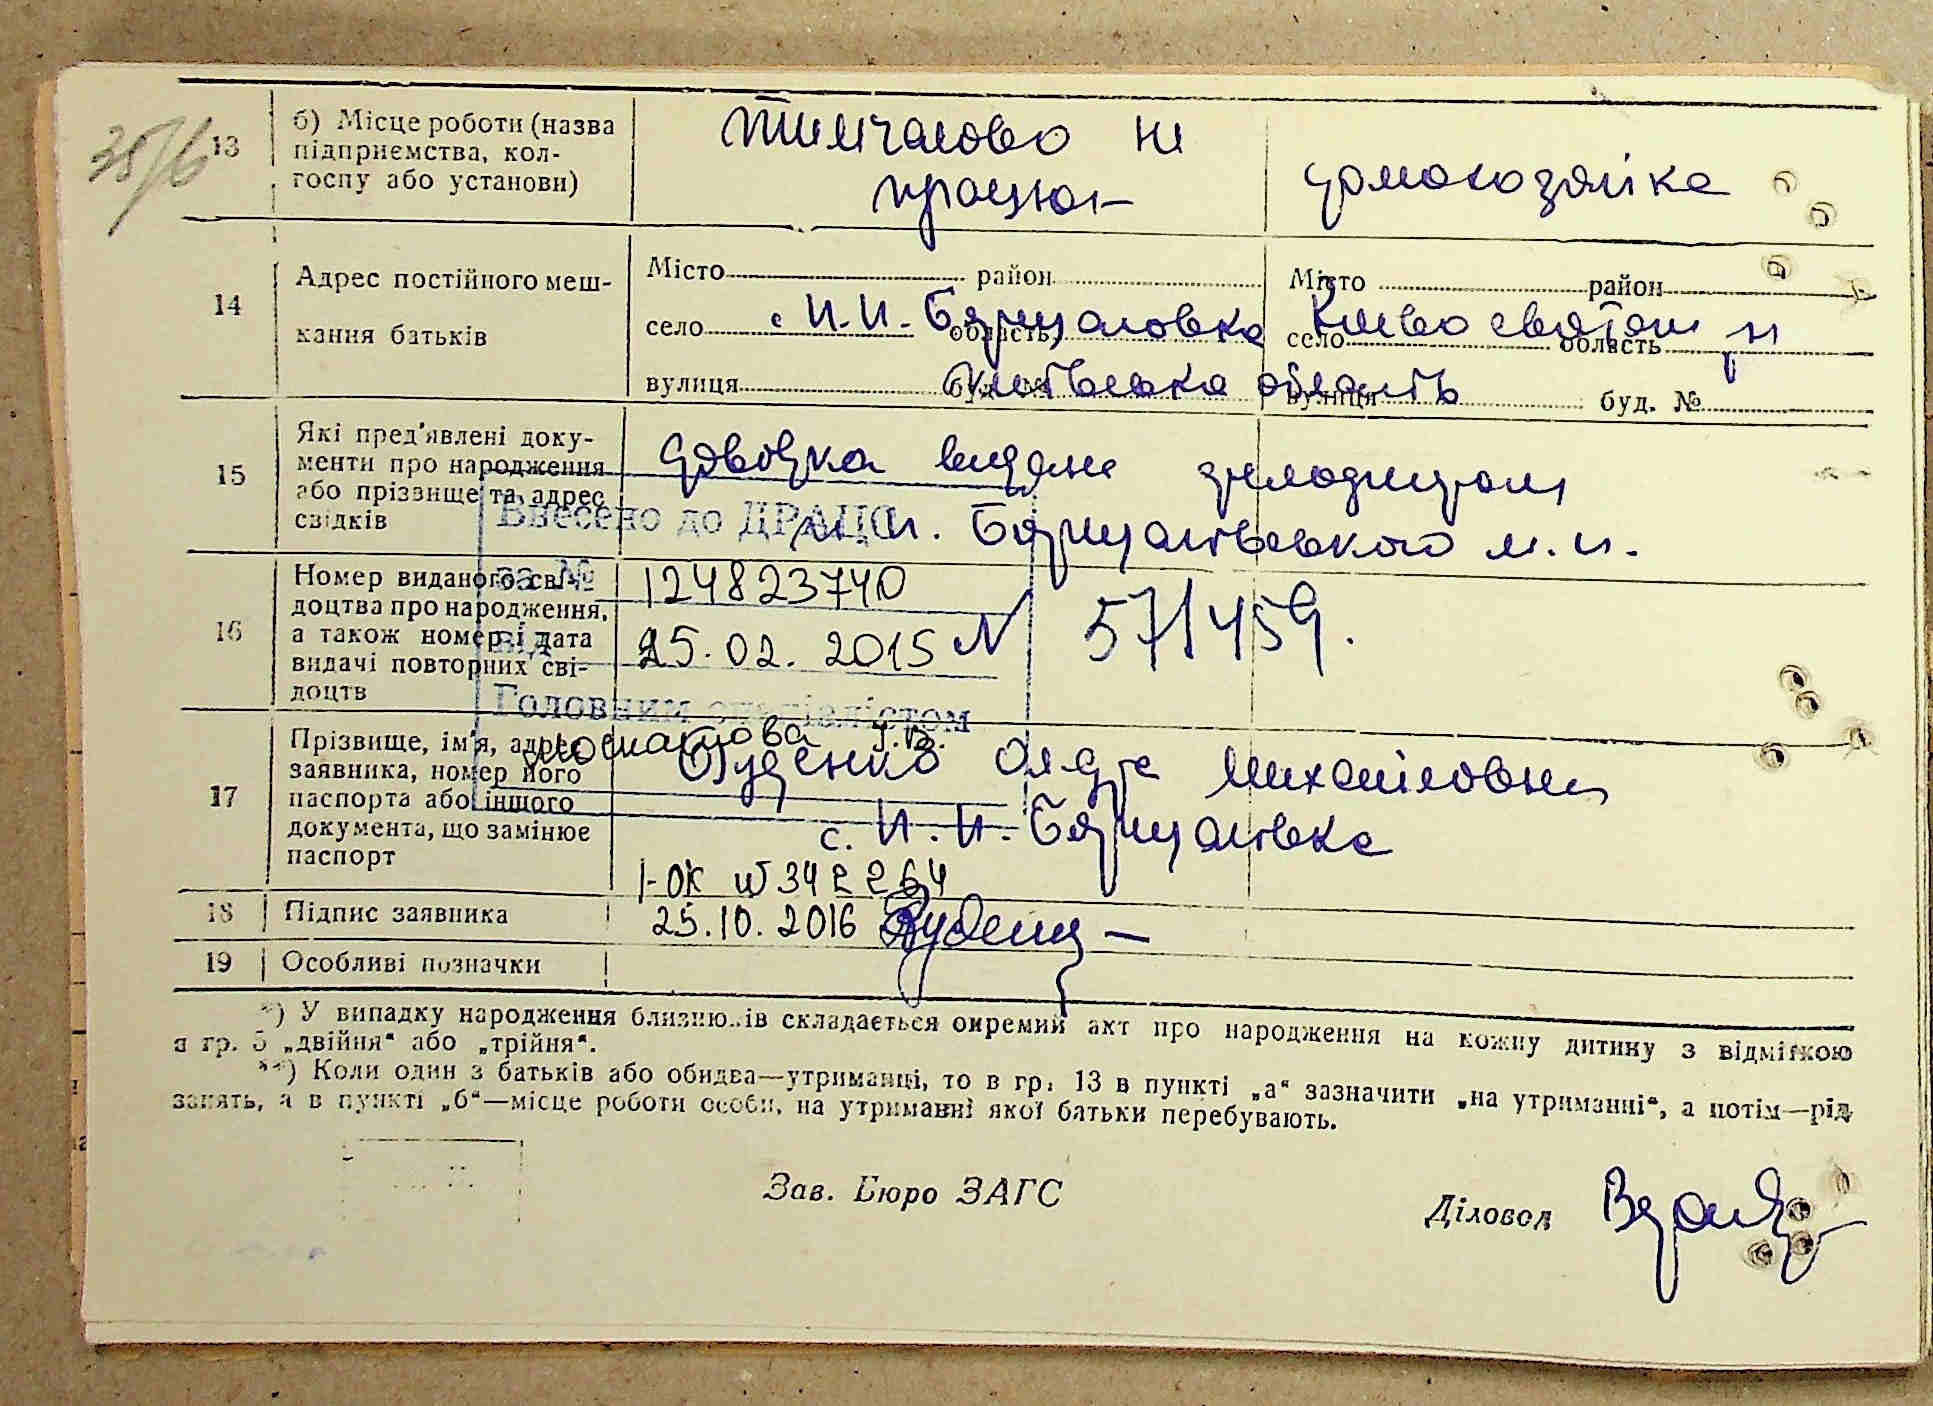 35/6
13
б) Місце роботи (назва
підприємства, кол-
госпу або установи)
тимчасово не
працює
домохозяйка
14
Адрес постійного меш-
кання батьків
Місто район
село с. П. П. Борщаговка область
вулиця Київська область буд. №
Місто район
село Києво святош р-н область
вулиця буд. №
15
Які пред'явлені доку-
менти про народження
або прізвище та адрес
свідків
довідка видана
П. Борщагівського м. п.
Внесено до ДРАЦС
за № 124823740
від 25.02.2015
Головним спеціалістом
16
Номер виданого сві-
доцтва про народження,
а також номер і дата
видачі повторних сві-
доцтв
N 57/459.
17
Прізвище, ім'я, адрес
заявника, номер його
паспорта або іншого
документа, що замінює
паспорт
Руденко Михайловна
с. П. П. Борщагівка
І-ОК № 342264
18
Підпис заявника
25.10.2016
19
Особливі позначки
*) У випадку народження близнюків складається окремий акт про народження на кожну дитину з відміткою
в гр. 5 „двійня“ або „трійня“.
**) Коли один з батьків або обидва—утриманці, то в гр. 13 в пункті „а“ зазначити „на утриманні“, а потім—рід
занять, а в пункті „б“—місце роботи особи, на утриманні якої батьки перебувають.
Зав. Бюро ЗАГС
Діловод